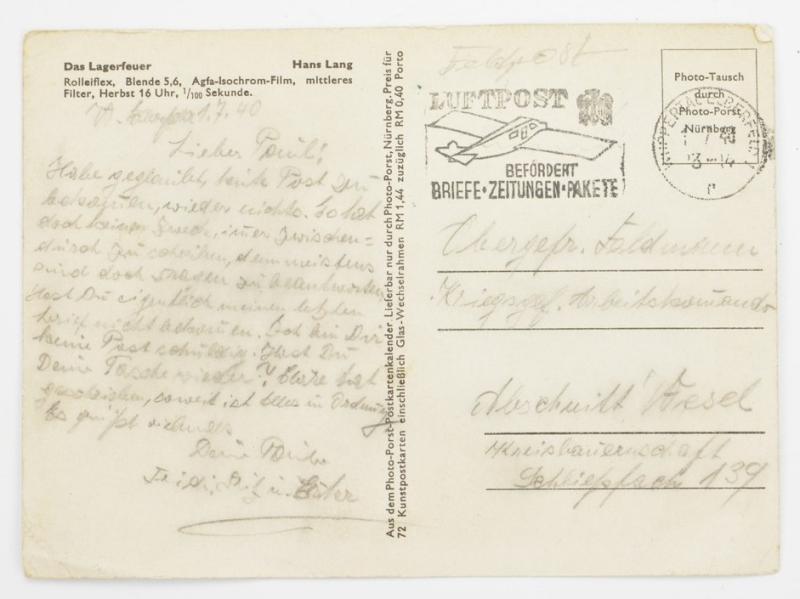 Das Lagerfeuer Hans Lang
Rolleiflex, Blende 5,6, Agfa-Isochrom-Film, mittleres
Filter, Herbst 16 Uhr, 1/100 Sekunde.
1.7.40
Lieber Paul!
Habe geglaubt, heute Post zu
bekommen, wieder nichts. Es hat
doch keinen Zweck, immer zwischen=
durch zu schreiben, denn meistens
sind doch Fragen zu beantworten.
Hast Du eigentlich meinen letzten
Brief nicht bekommen. Ich bin Dir
keine Post schuldig. Hast Du
Deine Tasche wieder? hat
geschrieben, soweit ist Alles in Ordnung
Es grüßt
Deine
Aus dem Photo-Porst-Postkartenkalender Lieferbar nur durch Photo-Porst, Nürnberg. Preis für
72 Kunstpostkarten einschließlich Glas-Wechselrahmen RM 1,44 zuzüglich RM 0,40 Porto
Feldpost
LUFTPOST
BEFÖRDERT
BRIEFE·ZEITUNGEN·PAKETE
Photo-Tausch
durch
Photo-Porst
Nürnberg
WUPPERTAL-ELBERFELD
Obergefr. Feldmann
Kriegsgef. Arbeitskomando
Abschnitt Wesel
Kreisbauernschaft
Schließfach 139